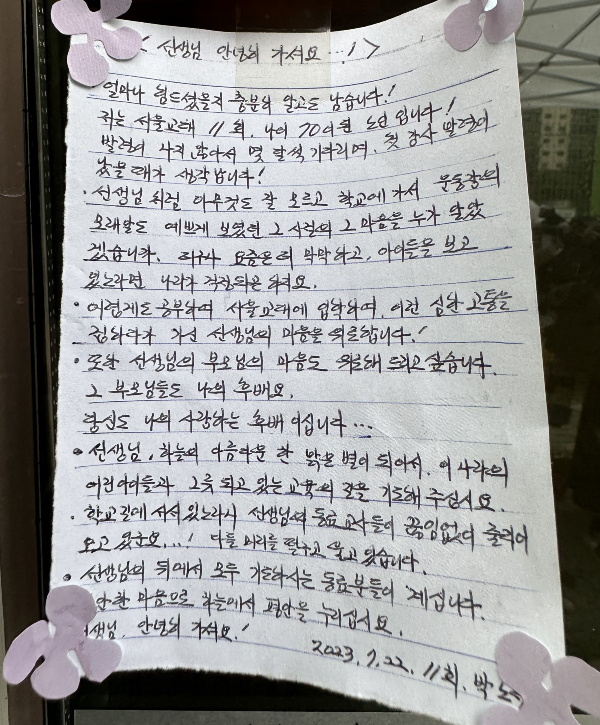 < 선생님 안녕히 가셔요...! >
얼마나 힘드셨을지 충분히 알고도 남습니다!
저는 서울교대 11회, 나이 70이된 노인 입니다!
발령이 나지 않아서 몇 달씩 기다리며, 첫 강사 발령이
났을 때가 생각납니다!
· 선생님 처럼 아무것도 잘 모르고 학교에 가서 운동장의
모래알도 예쁘게 보였던 그 시절의 그 마음을 누가 알았
겠습니까. 하나 요즘은 막막하고, 아이들을 보고
있노라면 나라가 걱정되곤 하지요.
· 어렵게도 공부하여 서울교대에 입학하여, 이런 심한 고통을
겪다가 가신 선생님의 마음을 위로합니다!
· 또한 선생님의 부모님의 마음도 위로해 드리고 싶습니다.
그 부모님들도 나의 후배요.
당신도 나의 사랑하는 후배 이십니다...
· 선생님, 하늘의 아름다운 한 밝은 별이 되어서, 이 나라의
어린아이들과 그릇 되고 있는 교육의 길을 기도해 주십시요.
· 학교길에 서서 있노라니 선생님의 동료 교사들이 끊임없이 줄이어
오고 있군요...! 다들 머리를 떨구고 울고 있습니다.
· 선생님의 뒤에서 모두 기도하시는 동료분들이 계십니다.
안한 마음으로 하늘에서 평안을 누리십시요.
선생님, 안녕히 가셔요!
2023. 7. 22. 11회. 박